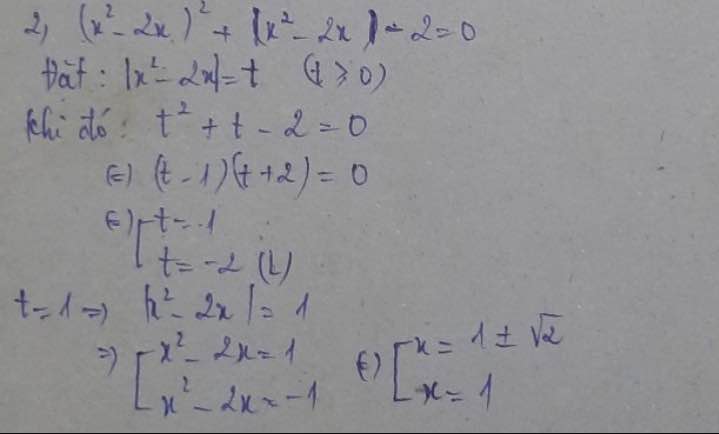 2, (x² - 2x)² + |x² - 2x| - 2 = 0
Đặt : |x² - 2x| = t (t ≥ 0)
Khi đó: t² + t - 2 = 0
(=) (t - 1)(t + 2) = 0
(=) [ t = 1
t = -2 (L)
t = 1 => |x² - 2x| = 1
=> [ x² - 2x = 1 (=) [ x = 1 ± √2
x² - 2x = -1 x = 1